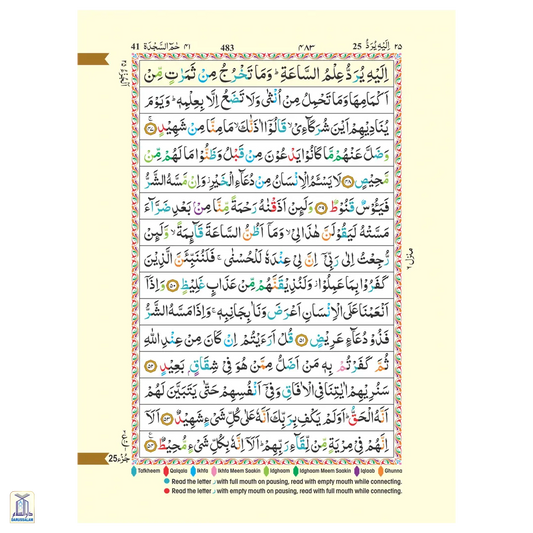 41 حٰمٓ السَّجْدَة ٤١ 483 ٤٨٣ 25 اِلَيْهِ يُرَدُّ ٢٥
اِلَيْهِ يُرَدُّ عِلْمُ السَّاعَةِ ؕ وَمَا تَخْرُجُ مِنْ ثَمَرٰتٍ مِّنْ
اَكْمَامِهَا وَمَا تَحْمِلُ مِنْ اُنْثٰى وَلَا تَضَعُ اِلَّا بِعِلْمِهٖ ؕ وَيَوْمَ
يُنَادِيْهِمْ اَيْنَ شُرَكَآءِيْ ۙ قَالُوْۤا اٰذَنّٰكَ ۙ مَا مِنَّا مِنْ شَهِيْدٍ ۚ ﴿٤٧﴾
وَضَلَّ عَنْهُمْ مَّا كَانُوْا يَدْعُوْنَ مِنْ قَبْلُ وَظَنُّوْا مَا لَهُمْ مِّنْ
مَّحِيْصٍ ﴿٤٨﴾ لَا يَسْـَٔمُ الْاِنْسَانُ مِنْ دُعَآءِ الْخَيْرِ ؗ وَاِنْ مَّسَّهُ الشَّرُّ
فَيَـُٔوْسٌ قَنُوْطٌ ﴿٤٩﴾ وَلَىِٕنْ اَذَقْنٰهُ رَحْمَةً مِّنَّا مِنْۢ بَعْدِ ضَرَّآءَ
مَسَّتْهُ لَيَقُوْلَنَّ هٰذَا لِيْ ۙ وَمَاۤ اَظُنُّ السَّاعَةَ قَآىِٕمَةً ۙ وَّلَىِٕنْ
رُّجِعْتُ اِلٰى رَبِّيْۤ اِنَّ لِيْ عِنْدَهٗ لَلْحُسْنٰى ۚ فَلَنُنَبِّئَنَّ الَّذِيْنَ
كَفَرُوْا بِمَا عَمِلُوْا ؗ وَلَنُذِيْقَنَّهُمْ مِّنْ عَذَابٍ غَلِيْظٍ ﴿٥٠﴾ وَاِذَاۤ
اَنْعَمْنَا عَلَى الْاِنْسَانِ اَعْرَضَ وَنَاٰ بِجَانِبِهٖ ۚ وَاِذَا مَسَّهُ الشَّرُّ
فَذُوْ دُعَآءٍ عَرِيْضٍ ﴿٥١﴾ قُلْ اَرَءَيْتُمْ اِنْ كَانَ مِنْ عِنْدِ اللّٰهِ
ثُمَّ كَفَرْتُمْ بِهٖ مَنْ اَضَلُّ مِمَّنْ هُوَ فِيْ شِقَاقٍۭ بَعِيْدٍ ﴿٥٢﴾
سَنُرِيْهِمْ اٰيٰتِنَا فِي الْاٰفَاقِ وَفِيْۤ اَنْفُسِهِمْ حَتّٰى يَتَبَيَّنَ لَهُمْ
اَنَّهُ الْحَقُّ ؕ اَوَلَمْ يَكْفِ بِرَبِّكَ اَنَّهٗ عَلٰى كُلِّ شَيْءٍ شَهِيْدٌ ﴿٥٣﴾ اَلَاۤ
اِنَّهُمْ فِيْ مِرْيَةٍ مِّنْ لِّقَآءِ رَبِّهِمْ ؕ اَلَاۤ اِنَّهٗ بِكُلِّ شَيْءٍ مُّحِيْطٌ ﴿٥٤﴾
منزل ٦
25 جُزء
Tafkheem Qalqala Ikhfa Ikhfa Meem Saakin Idghaam Idghaam Meem Saakin Iqlaab Ghunna
Read the letter ر with full mouth on pausing, read with empty mouth while connecting.
Read the letter ر with empty mouth on pausing, read with full mouth while connecting.
DARUSSALAM